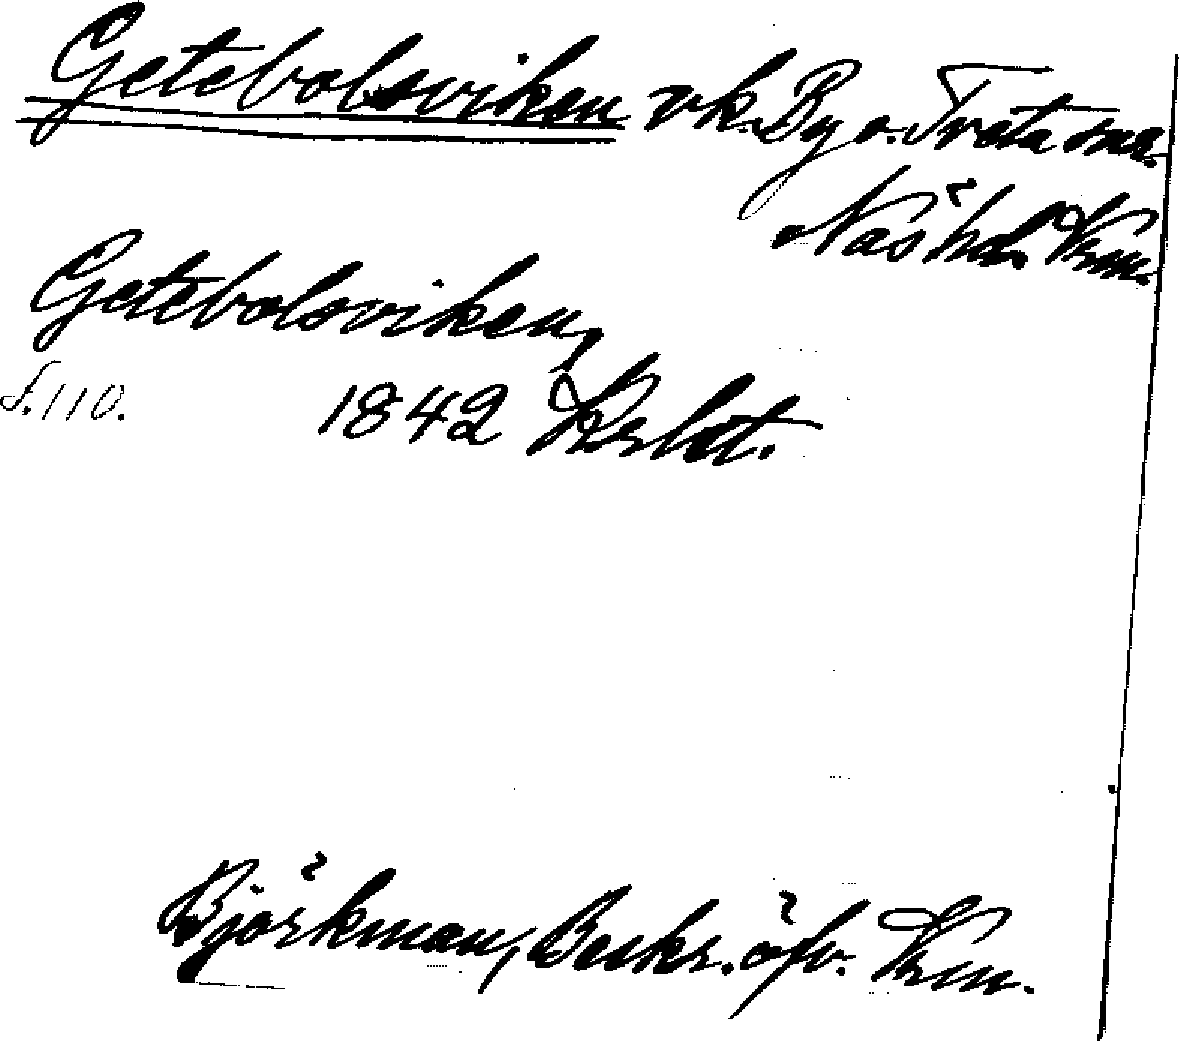 Getebolsviken vk. By o. Tveta sna.
Näs hd. Vrm.
Getebolsviken,
s. 110. 1842 Krlbt.
Björkman, Beskr. öfv. Vrm.